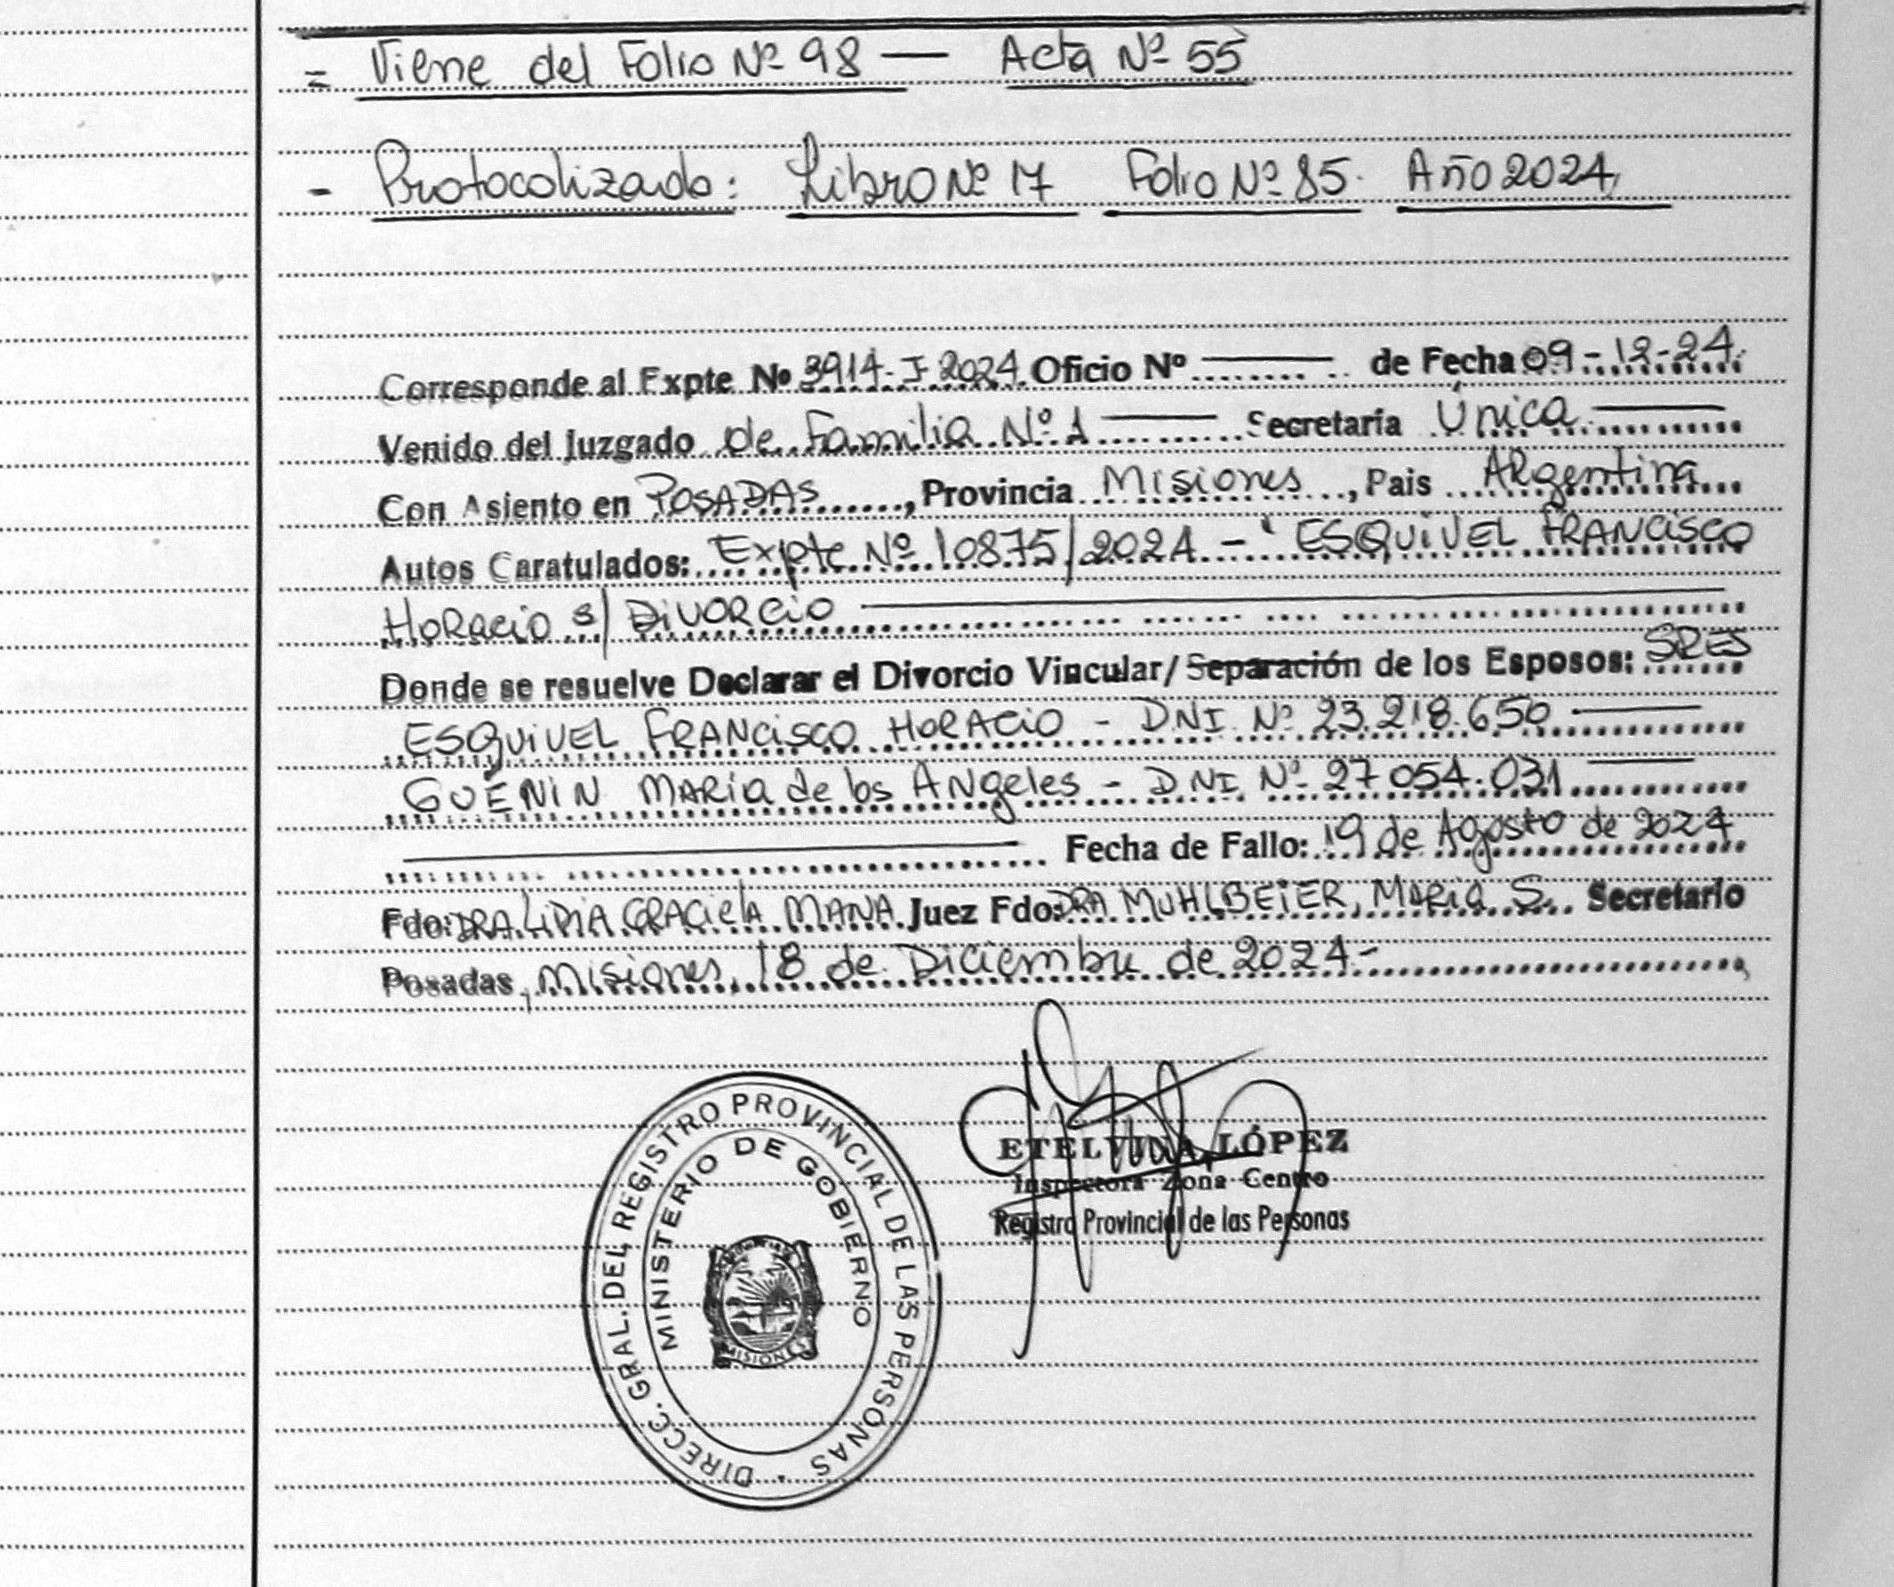 = Viene del Folio Nº 98 — Acta Nº 55
- Protocolizado: Libro Nº 17 Folio Nº 85. Año 2024,
Corresponde al Expte Nº 3914-J-2024 Oficio Nº ——— de Fecha 09-12-24.
Venido del Juzgado de Familia Nº 1 ——— Secretaría Única ———
Con Asiento en POSADAS, Provincia Misiones, Pais Argentina
Autos Caratulados: Expte Nº 10875/2024 - " ESQUIVEL FRANCISCO
HORACIO s/ DIVORCIO ———
Donde se resuelve Declarar el Divorcio Vincular/ Separación de los Esposos: SRES
ESQUIVEL FRANCISCO HORACIO - DNI Nº 23.218.650 ———
GUENIN MARIA de los ANgeles - DNI Nº 27 054.031 ———
——— Fecha de Fallo: 19 de Agosto de 2024
Fdo: DRA. LIDIA GRACIELA MANA Juez Fdo: DRA MUHLBEIER, MARIA S. Secretario
Posadas, Misiones, 18 de Diciembre de 2024-
DIRECC. GRAL. DEL REGISTRO PROVINCIAL DE LAS PERSONAS
MINISTERIO DE GOBIERNO
MISIONES
ETELVINA LÓPEZ
Inspectora Zona Centro
Registro Provincial de las Personas